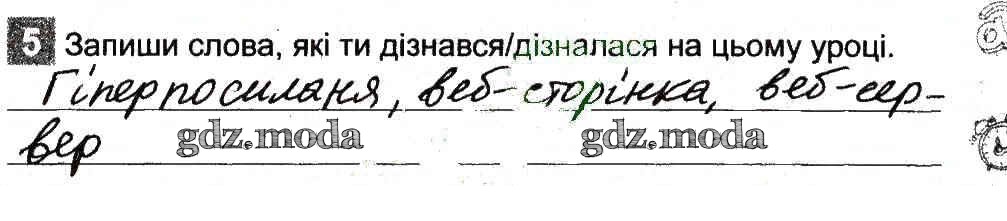 5 Запиши слова, які ти дізнався/дізналася на цьому уроці.
Гіперпосиланя, веб-сторінка, веб-сер-
вер gdz.moda gdz.moda